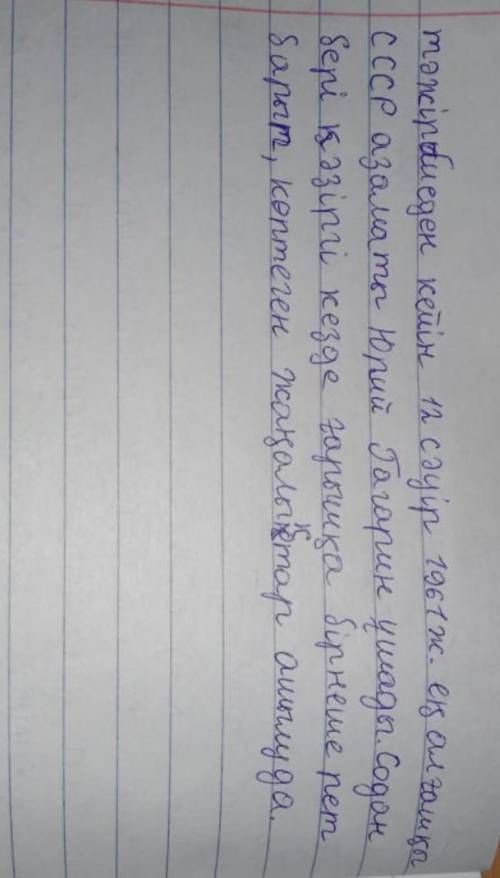 тәжірбиеден кейін 12 сәуір 1961ж. ең алғашқы
СССР азаматы Юрий Гагарин ұшады. Содан
бері қәзіргі кезде ғарышқа бірнеше рет
барып, көптеген жаңалықтар ашылуда.